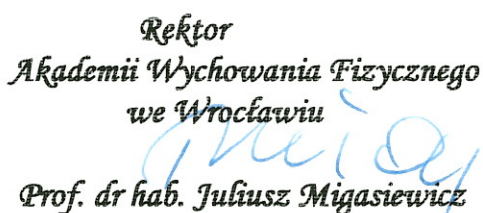 Rektor
Akademii Wychowania Fizycznego
we Wrocławiu
Prof. dr hab. Juliusz Migasiewicz